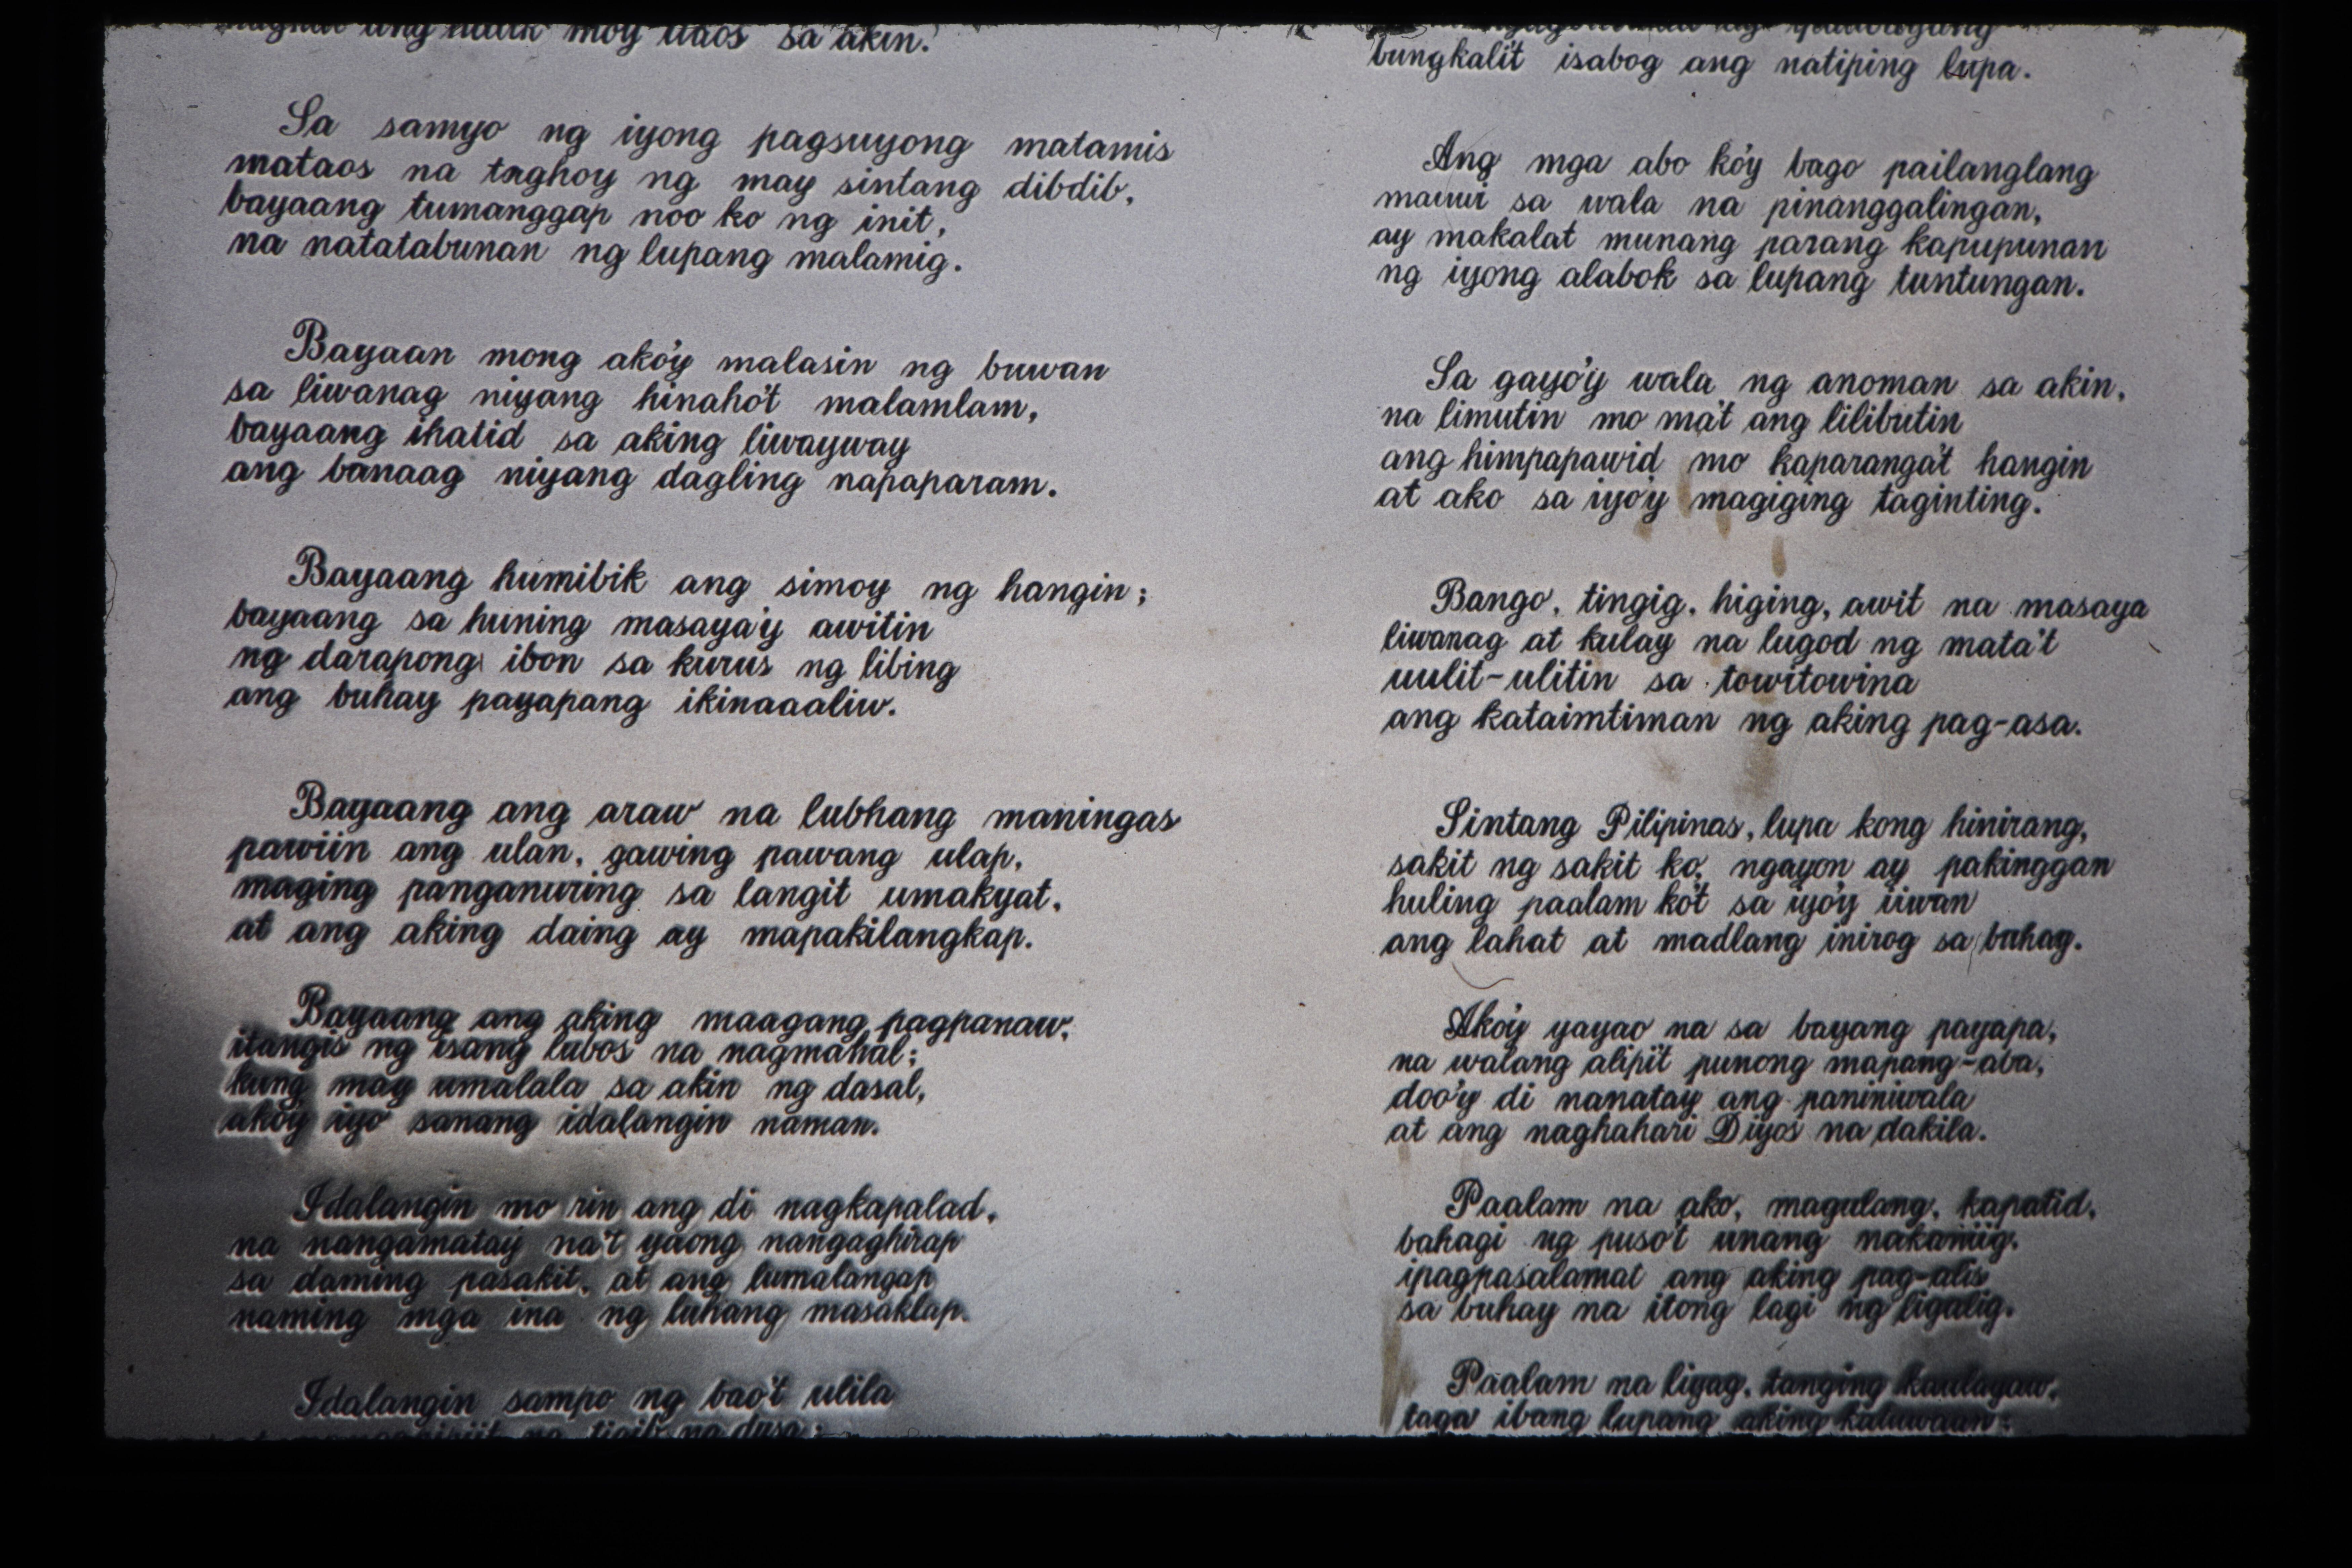 moy taos sa akin.
Sa samyo ng iyong pagsuyong matamis
mataos na taghoy ng may sintang dibdib,
bayaang tumanggap noo ko ng init,
na natatabunan ng lupang malamig.
Bayaan mong ako'y malasin ng buwan
sa liwanag niyang hinaho't malamlam,
bayaang ihatid sa aking liwayway
ang banaag niyang dagling napaparam.
Bayaang humibik ang simoy ng hangin;
bayaang sa huning masaya'y awitin
ng darapong ibon sa kurus ng libing
ang buhay payapang ikinaaaliw.
Bayaang ang araw na lubhang maningas
pawiin ang ulan, gawing pawang ulap,
maging panganuring sa langit umakyat,
at ang aking daing ay mapakilangkap.
Bayaang ang aking maagang pagpanaw,
itangis ng isang lubos na nagmahal;
kung may umalala sa akin ng dasal,
ako'y iyo sanang idalangin naman.
Idalangin mo rin ang di nagkapalad,
na nangamatay na't yaong nangaghirap
sa daming pasakit, at ang lumalangap
naming mga ina ng luhang masaklap.
Idalangin sampo ng bao't ulila
ng tigib na dusa;
bungkali't isabog ang natiping lupa.
Ang mga abo ko'y bago pailanglang
mauwi sa wala na pinanggalingan,
ay makalat munang parang kapupunan
ng iyong alabok sa lupang tuntungan.
Sa gayo'y wala ng anoman sa akin,
na limutin mo ma't ang lilibutin
ang himpapawid mo kaparanga't hangin
at ako sa iyo'y magiging taginting.
Bango, tingig, higing, awit na masaya
liwanag at kulay na lugod ng mata't
uulit-ulitin sa towitowina
ang kataimtiman ng aking pag-asa.
Sintang Pilipinas, lupa kong hinirang,
sakit ng sakit ko, ngayon ay pakinggan
huling paalam ko't sa iyo'y iiwan
ang lahat at madlang inirog sa buhay.
Ako'y yayao na sa bayang payapa,
na walang alipi't punong mapang-aba,
doo'y di nanatay ang paniniwala
at ang naghahari Diyos na dakila.
Paalam na ako, magulang, kapatid,
bahagi ng puso't unang nakaniig,
ipagpasalamat ang aking pag-alis
sa buhay na itong lagi ng ligalig.
Paalam na liyag, tanging kaulayaw,
taga ibang lupang aking katuwaan;